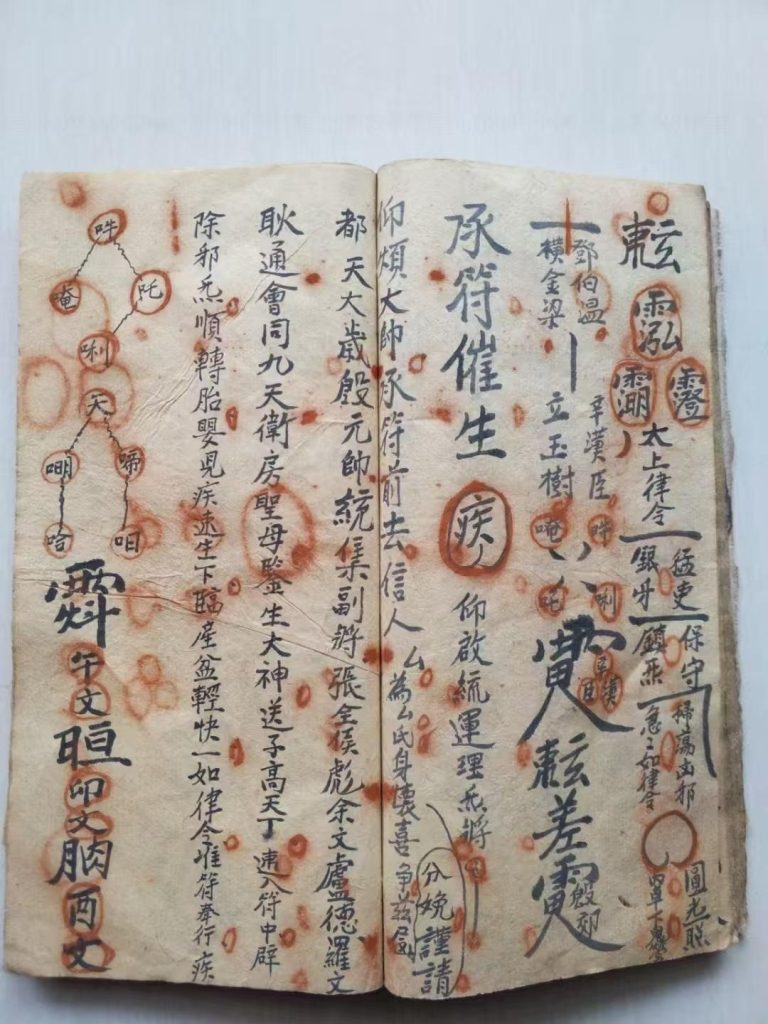 太上律令
猛吏
保守
銀牙
鎮炁
掃蕩凶邪
急々如律令
圓光照
鄧伯溫
橫金梁
辛漢臣
立玉樹
唵
吽
吒
唎
差
殷郊
承符催生
疾
仰啟統運理炁將
分娩謹請
仰煩大帥承符前去信人厶為厶氏身懷喜孕茲屆
都天大歲殷元帥統集副將張全侯彪余文盧德羅文
耿通會同九天衛房聖母監生大神送子高天丁速入符中辟
除邪炁順轉胎嬰見疾速生下臨產盆輕快一如律令准符奉行疾
吽
唵
吒
唎
天
啼
哈
午文
卯文
酉文